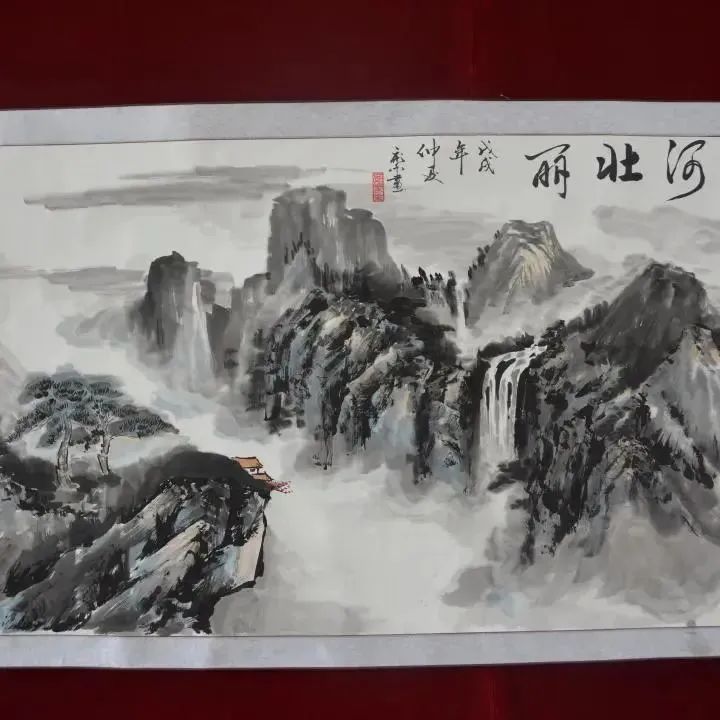 河壮丽
戊戌
年
仲夏
画